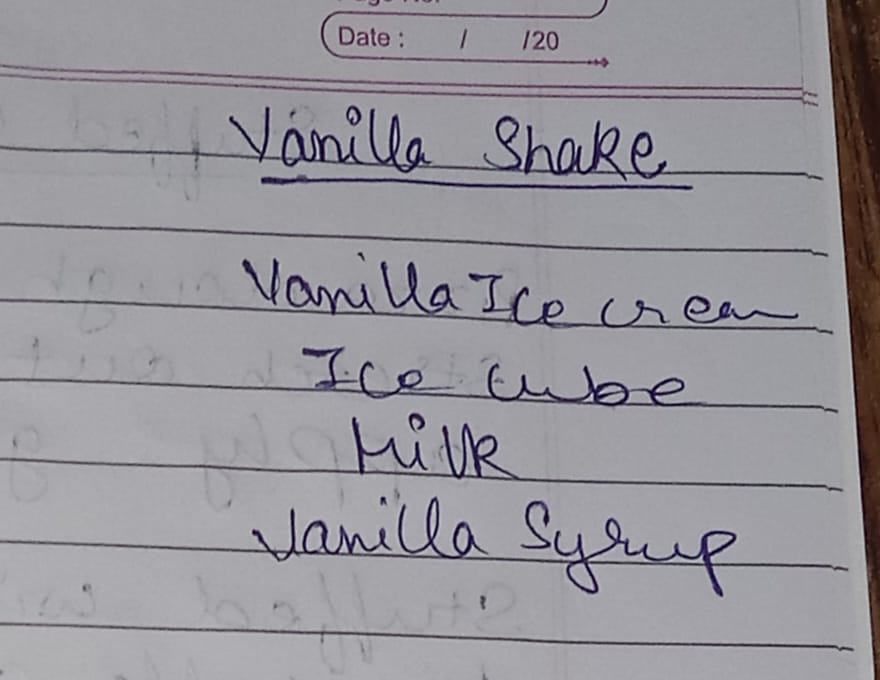 Date : / /20
Vanilla Shake
Vanilla Ice cream
Ice cube
Milk
Vanilla Syrup